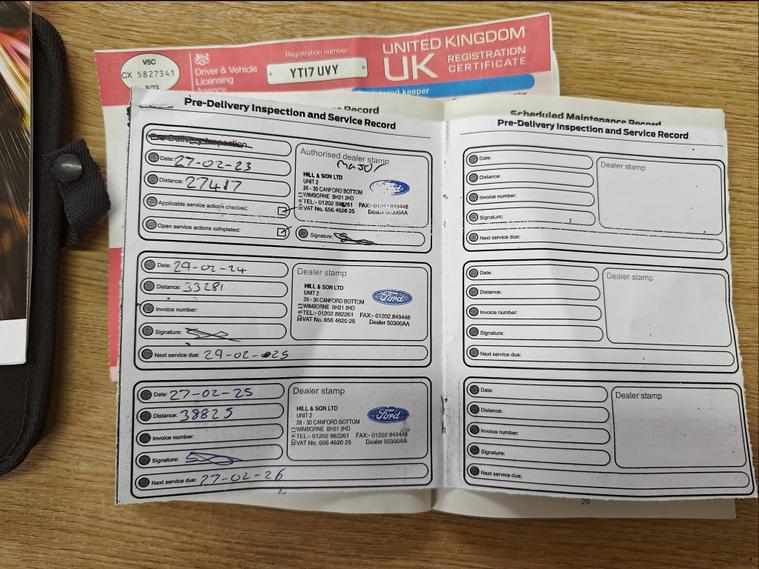 V5C
CX 5827341
5/23
Driver & Vehicle
Licensing
Agency
Registration number
YT17 UVY
UNITED KINGDOM
UK REGISTRATION
CERTIFICATE
keeper
Record
Pre-Delivery Inspection and Service Record
Pre-Delivery Inspection
Date: 27-02-23
Distance: 27417
Applicable service actions checked:
Open service actions completed:
Authorised dealer stamp
Major
HILL & SON LTD
UNIT 2
26 - 30 CANFORD BOTTOM
WIMBORNE BH21 2HD
TEL:- 01202 882261 FAX:-
VAT No. 656 4620 25 Dealer 50300AA
Ford
Signature:
Date: 29-02-24
Distance: 33281
Invoice number:
Signature:
Next service due: 29-02-025
Dealer stamp
HILL & SON LTD
UNIT 2
26 - 30 CANFORD BOTTOM
WIMBORNE BH21 2HD
TEL:- 01202 882261 FAX:- 01202 849448
VAT No. 656 4620 25 Dealer 50300AA
Ford
Date: 27-02-25
Distance: 38825
Invoice number:
Signature:
Next service due: 27-02-26
Dealer stamp
HILL & SON LTD
UNIT 2
26 - 30 CANFORD BOTTOM
WIMBORNE BH21 2HD
TEL:- 01202 882261 FAX:- 01202 849448
VAT No. 656 4620 25 Dealer 50300AA
Ford
Scheduled Maintenance Record
Pre-Delivery Inspection and Service Record
Date:
Distance:
Invoice number:
Signature:
Next service due:
Dealer stamp
Date:
Distance:
Invoice number:
Signature:
Next service due:
Dealer stamp
Date:
Distance:
Invoice number:
Signature:
Next service due:
Dealer stamp
29